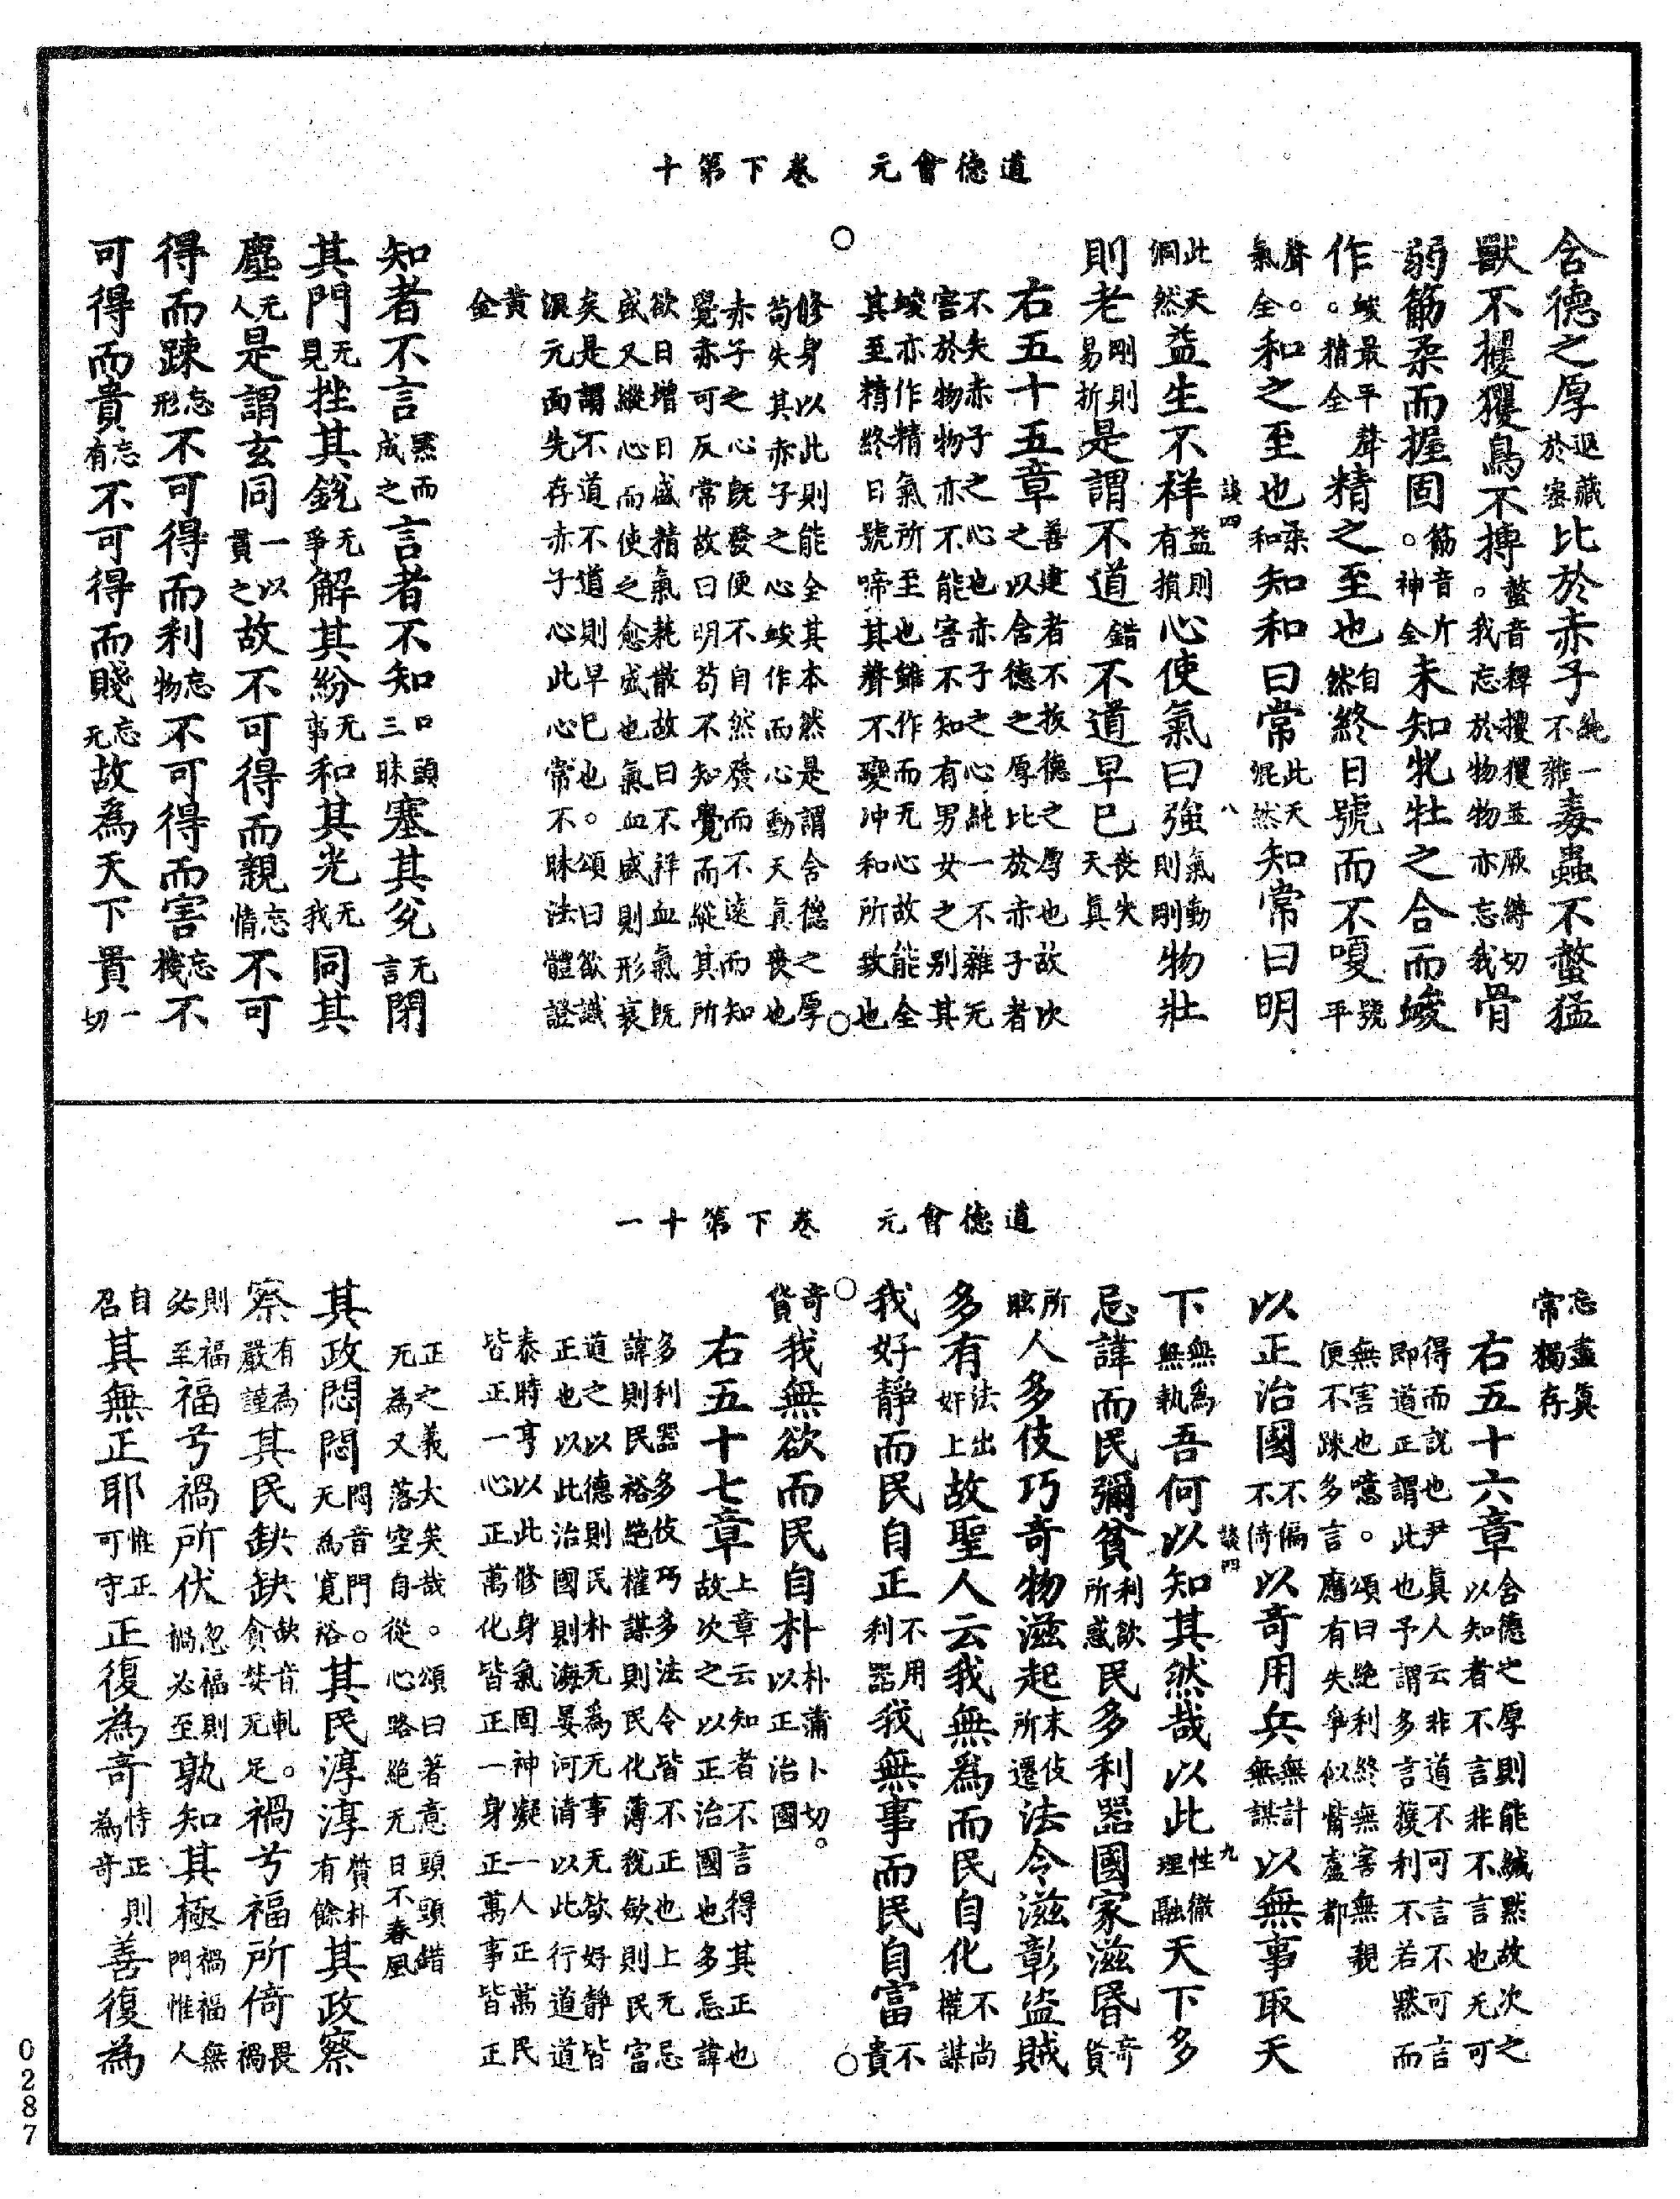 道德會元　卷下第十
含德之厚退藏於密比於赤子純一不雜毒蟲不螫猛
獸不攫玃鳥不搏螫音釋攫玃並厥縛切。我忘於物物亦忘我骨
弱筋柔而握固筋音斤。神全未知牝牡之合而峻
作峻最平聲。精全精之至也自然終日號而不嗄號平
聲。氣全和之至也柔和知和曰常此天混然知常曰明
此天洞然益生不祥益則有損心使氣曰強氣動則剛物壯
則老剛則易折是謂不道錯不道早已喪失天真
右五十五章善建者不拔德之厚也故次之以含德之厚比於赤子者
不失赤子之心也赤子之心純一不雜无害於物物亦不能害不知有男女之別其
峻亦作精氣所至也雖作而无心故能全其至精終日號啼其聲不變冲和所致也
修身以此則能全其本然是謂含德之厚苟失其赤子之心峻作而心動天真喪也
赤子之心旣發便不自然發而不遠而知覺亦可反常故曰明苟不知覺而縱其所
欲日增日盛精氣耗散故曰不祥血氣旣盛又縱心而使之愈盛也氣血盛則形衰
矣是謂不道不道則早已也。頌曰欲識混元面先存赤子心此心常不昧法體證
黄金
知者不言默而成之言者不知口頭三昧塞其兌无言閉
其門无見挫其銳无爭解其紛无事和其光无我同其
塵无人是謂玄同一以貫之故不可得而親忘情不可
得而踈忘形不可得而利忘物不可得而害忘機不
可得而貴忘有不可得而賤忘无故為天下貴一切
道德會元　卷下第十一
忘盡真常獨存
右五十六章含德之厚則能緘默故次之以知者不言非不言也无可
得而説也尹真人云非道不可言不可言即道正謂此也予謂多言獲利不若默而
無害也噫。頌曰絶利終無害無親便不踈多言應有失爭似觜盧都
以正治國不偏不倚以奇用兵無計無謀以無事取天
下無為無執吾何以知其然哉以此性徹理融天下多
忌諱而民彌貧利欲所惑民多利器國家滋昬奇貨
所眩人多伎巧奇物滋起末伎所遷法令滋彰盜賊
多有法出奸上故聖人云我無為而民自化不尚權謀
我好靜而民自正不用利器我無事而民自富不貴
奇貨我無欲而民自朴朴蒲卜切。以正治國
右五十七章上章云知者不言得其正也故次之以正治國也多忌諱
多利器多伎巧多法令皆不正也上无忌諱則民裕絶權謀則民化薄稅斂則民富
道之以德則民朴无為无事无欲好靜皆正也以此治國則海晏河清以此行道道
泰時亨以此修身氣固神凝一人正萬民皆正一心正萬化皆正一身正萬事皆正
正之義大矣哉。頌曰著意頭頭錯无為又落空自從心路絶无日不春風
其政悶悶悶音門。无為寬裕其民淳淳質朴有餘其政察
察有為嚴謹其民缺缺缺音軏。貪婪无足禍兮福所倚畏禍
則福必至福兮禍所伏忽福則禍必至孰知其極禍福無門惟人
自召其無正耶惟正可守正復為奇恃正則為奇善復為
談四　八
談四　九
0287